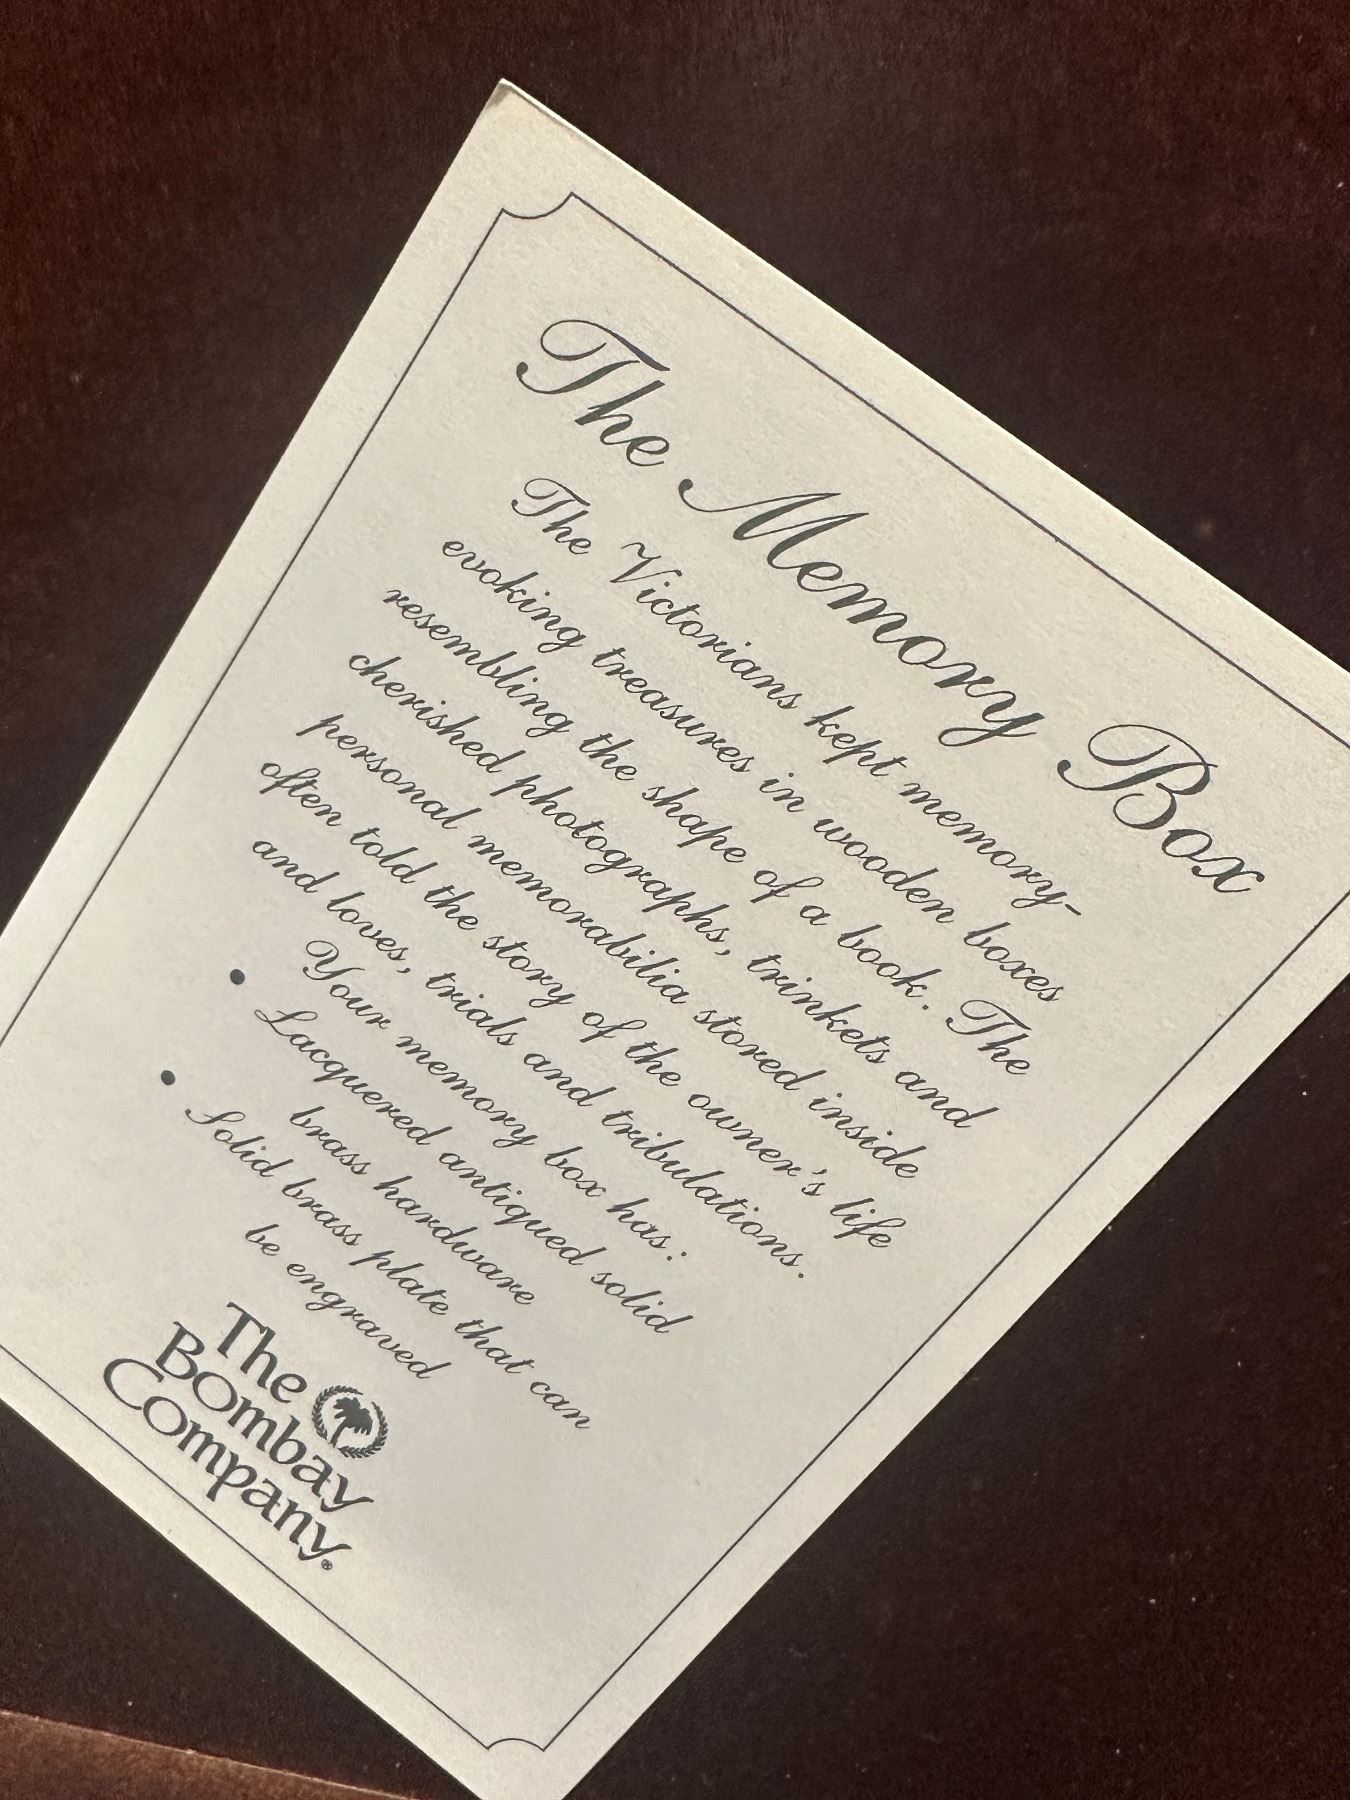 The Memory Box
The Victorians kept memory-
evoking treasures in wooden boxes
resembling the shape of a book. The
cherished photographs, trinkets and
personal memorabilia stored inside
often told the story of the owner's life
and loves, trials and tribulations.
Your memory box has:
• Lacquered antiqued solid
brass hardware
• Solid brass plate that can
be engraved
The
Bombay
Company®